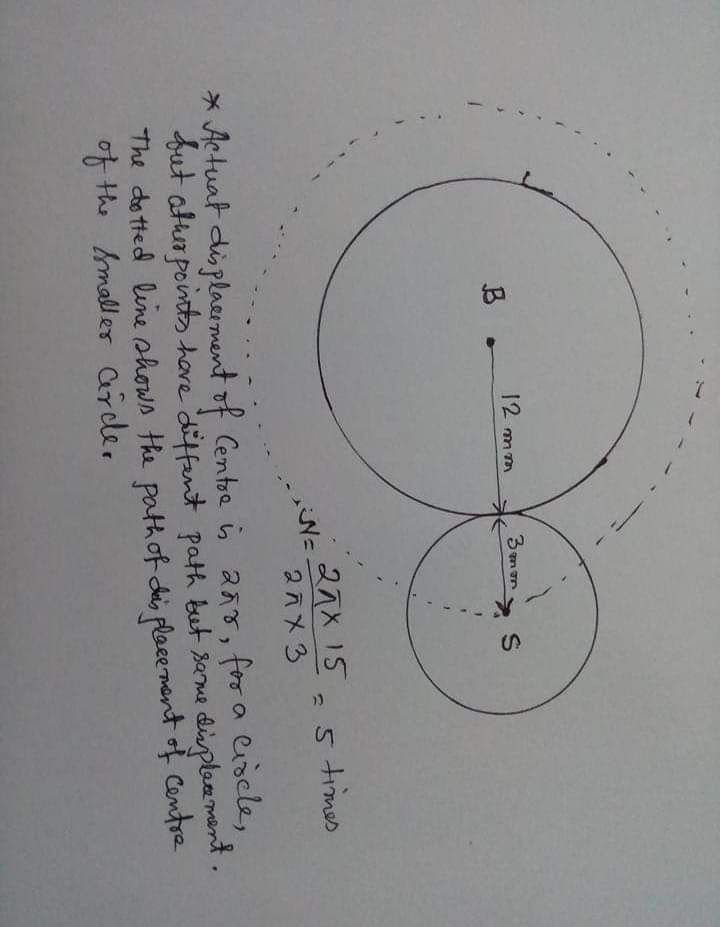 B
12 mm
3mm
S
N = 2π × 15 / 2π × 3 = 5 times
* Actual displacement of Centre is 2πr, for a circle,
but other points have diffent path but same displacement.
The dotted line shows the path of displacement of centre
of the smaller circle.